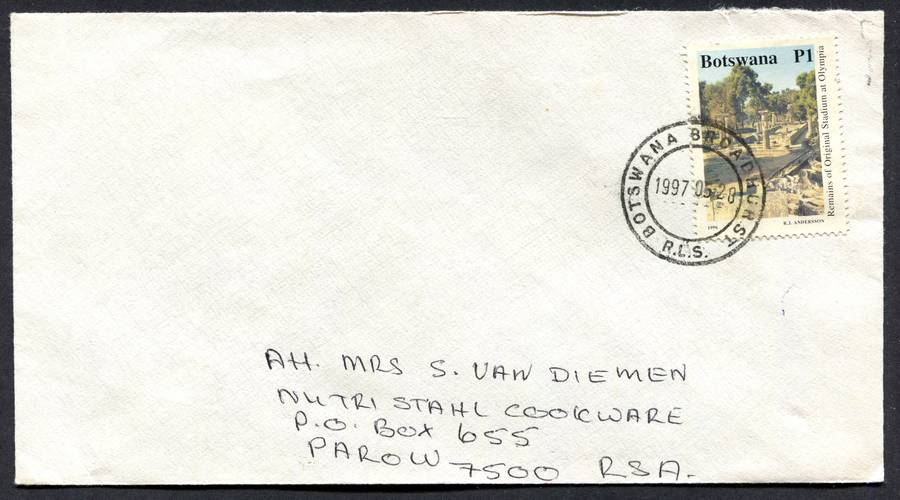 Botswana P1
Remains of Original Stadium at Olympia
R.J. ANDERSSON
1996
BOTSWANA BROADHURST
1997-05-28
R.L.S.
Att. MRS S. VAN DIEMEN
NUTRI STAHL COOKWARE
P.O. BOX 655
PAROW 7500 RSA.